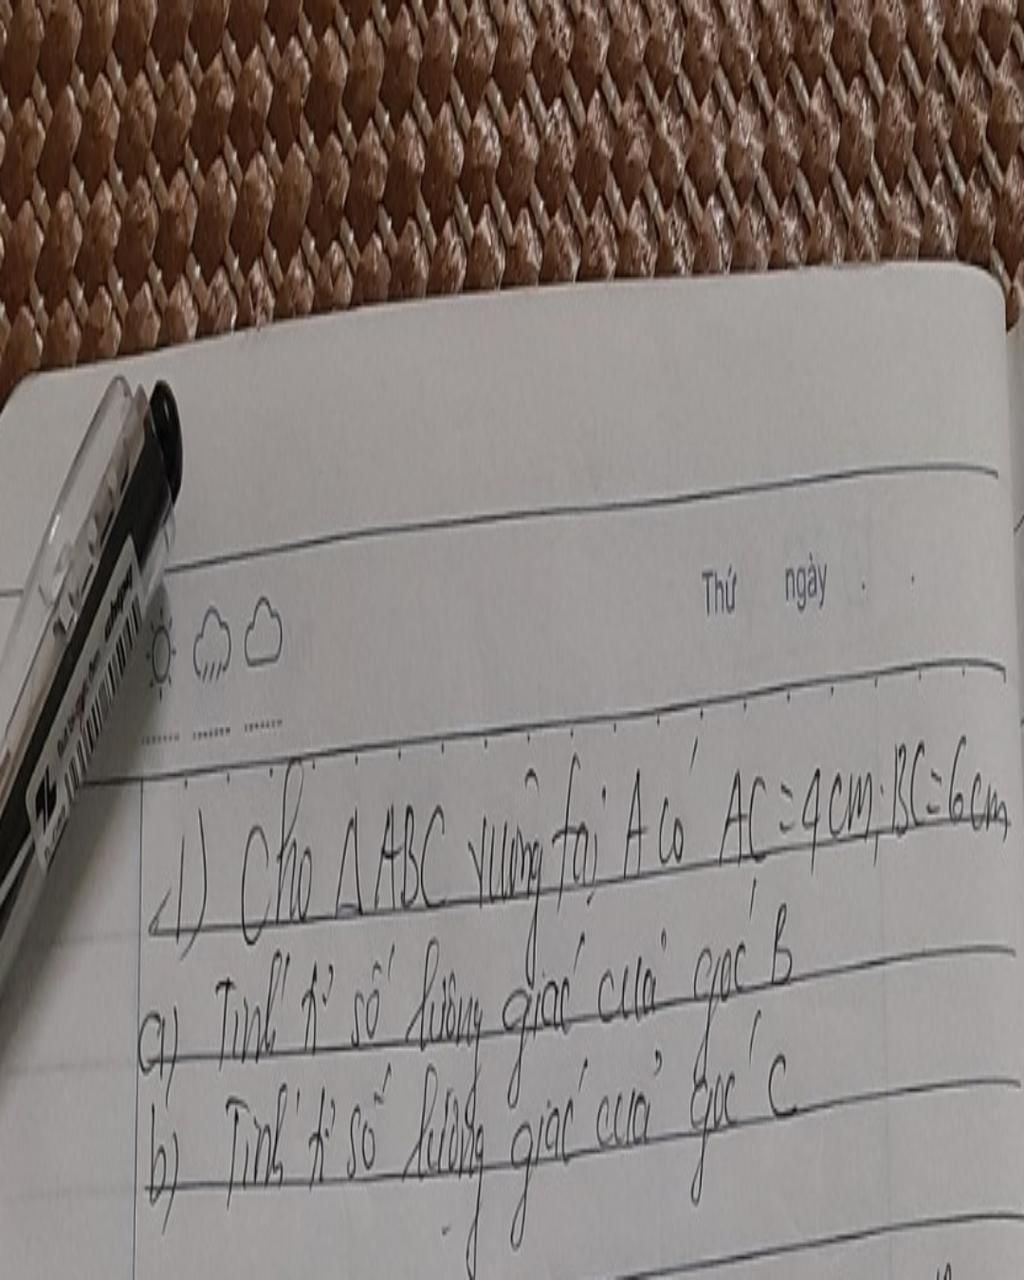 Thứ ngày
1) Cho Δ ABC vuông tại A có AC = 4cm; BC = 6cm
a) Tính tỉ số lượng giác của góc B
b) Tính tỉ số lượng giác của góc C